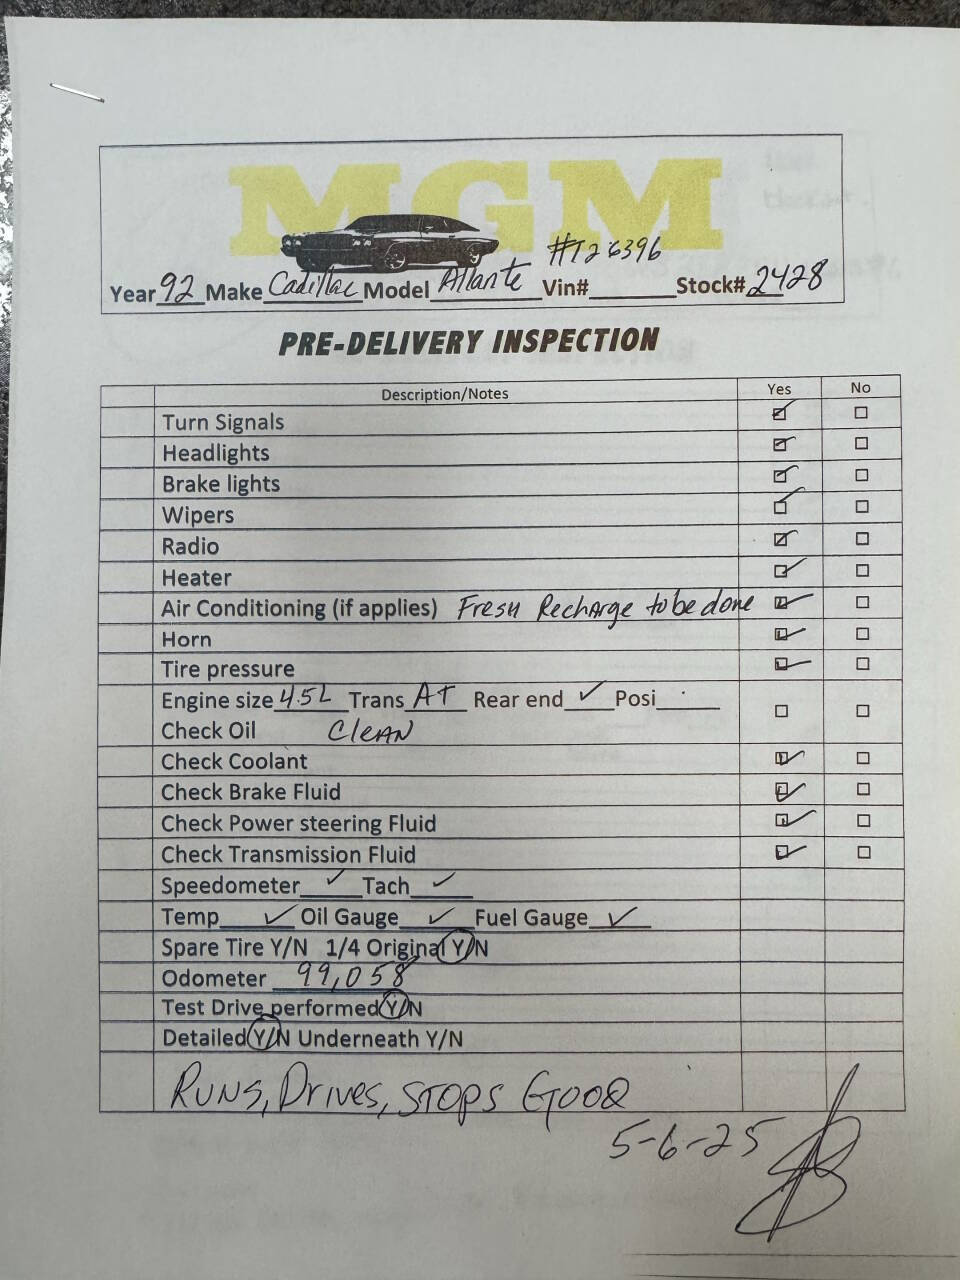 MGM
#126396
Year 92 Make Cadillac Model Allante Vin# Stock# 2428
PRE-DELIVERY INSPECTION
Description/Notes Yes No
Turn Signals
Headlights
Brake lights
Wipers
Radio
Heater
Air Conditioning (if applies) Fresh Recharge to be done
Horn
Tire pressure
Engine size 4.5L Trans AT Rear end ✓ Posi
Check Oil Clean
Check Coolant
Check Brake Fluid
Check Power steering Fluid
Check Transmission Fluid
Speedometer ✓ Tach ✓
Temp ✓ Oil Gauge ✓ Fuel Gauge ✓
Spare Tire Y/N 1/4 Original Y/N
Odometer 99,058
Test Drive performed Y/N
Detailed Y/N Underneath Y/N
Runs, Drives, Stops Good
5-6-25